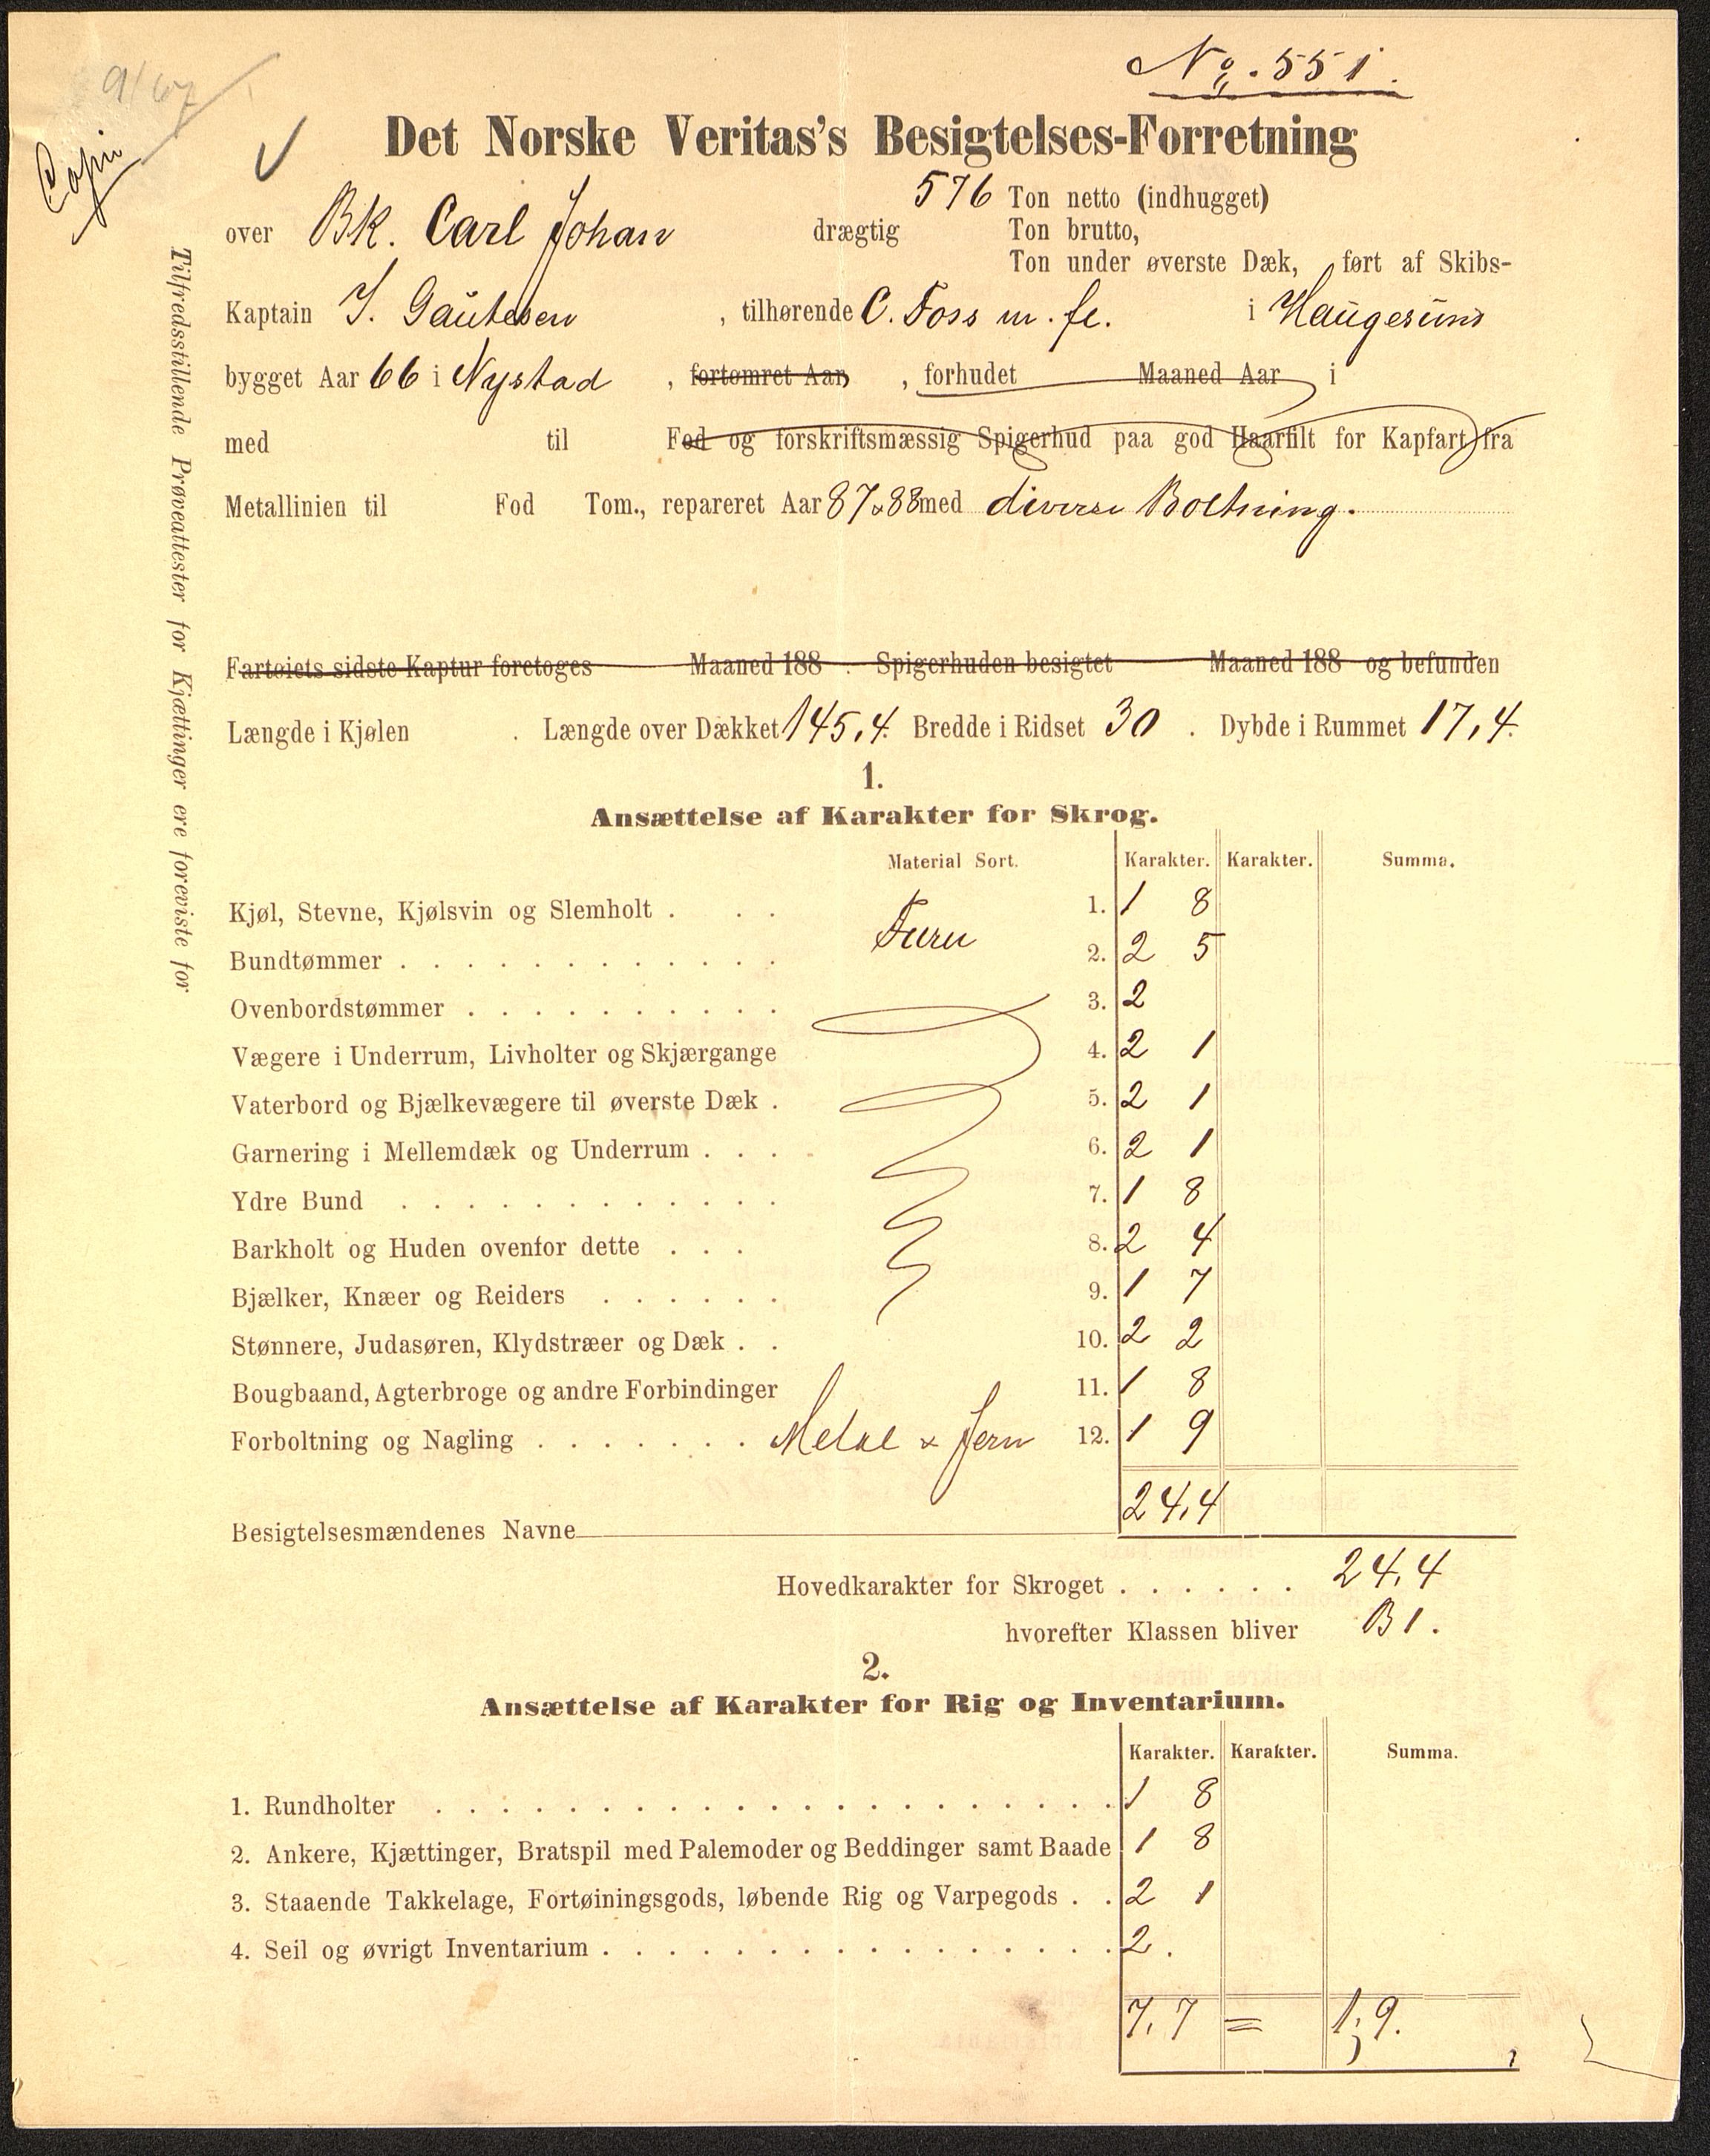 No. 551.
9/67
Copi
Det Norske Veritas's Besigtelses-Forretning
576 Ton netto (indhugget)
over Bk. Carl Johan drægtig Ton brutto,
Ton under øverste Dæk, ført af Skibs-
Kaptain J. Gautesen , tilhørende C. Foss m. fl. i Haugesund
bygget Aar 66 i Nystad , fortømret Aar , forhudet Maaned Aar i
med til Fod og forskriftsmæssig Spigerhud paa god Haarfilt for Kapfart fra
Metallinien til Fod Tom., repareret Aar 87 & 88 med diverse Boltning.
Fartøiets sidste Kaptur foretoges Maaned 188 . Spigerhuden besigtet Maaned 188 og befunden
Længde i Kjølen . Længde over Dækket 145,4. Bredde i Ridset 30 . Dybde i Rummet 17,4.
1.
Ansættelse af Karakter for Skrog.
Material Sort. Karakter. Karakter. Summa.
Kjøl, Stevne, Kjølsvin og Slemholt . . . 1. 1 8
Furu
Bundtømmer . . . . . . . . . . . . 2. 2 5
Ovenbordstømmer . . . . . . . . . . 3. 2
Vægere i Underrum, Livholter og Skjærgange 4. 2 1
Vaterbord og Bjælkevægere til øverste Dæk . 5. 2 1
Garnering i Mellemdæk og Underrum . . . . 6. 2 1
Ydre Bund . . . . . . . . . . . . 7. 1 8
Barkholt og Huden ovenfor dette . . . 8. 2 4
Bjælker, Knæer og Reiders . . . . . . 9. 1 7
Stønnere, Judasøren, Klydstræer og Dæk . . 10. 2 2
Bougbaand, Agterbroge og andre Forbindinger 11. 1 8
Forboltning og Nagling . . . . . . . Metal & Jern 12. 1 9
24,4
Besigtelsesmændenes Navne
Hovedkarakter for Skroget . . . . . . 24,4
hvorefter Klassen bliver B 1.
2.
Ansættelse af Karakter for Rig og Inventarium.
Karakter. Karakter. Summa.
1. Rundholter . . . . . . . . . . . . . . . . . . . . . 1 8
2. Ankere, Kjættinger, Bratspil med Palemoder og Beddinger samt Baade 1 8
3. Staaende Takkelage, Fortøiningsgods, løbende Rig og Varpegods . . 2 1
4. Seil og øvrigt Inventarium . . . . . . . . . . . . . . . . 2.
7,7 = 1,9.
Tilfredsstillende Prøveattester for Kjættinger ere foreviste for